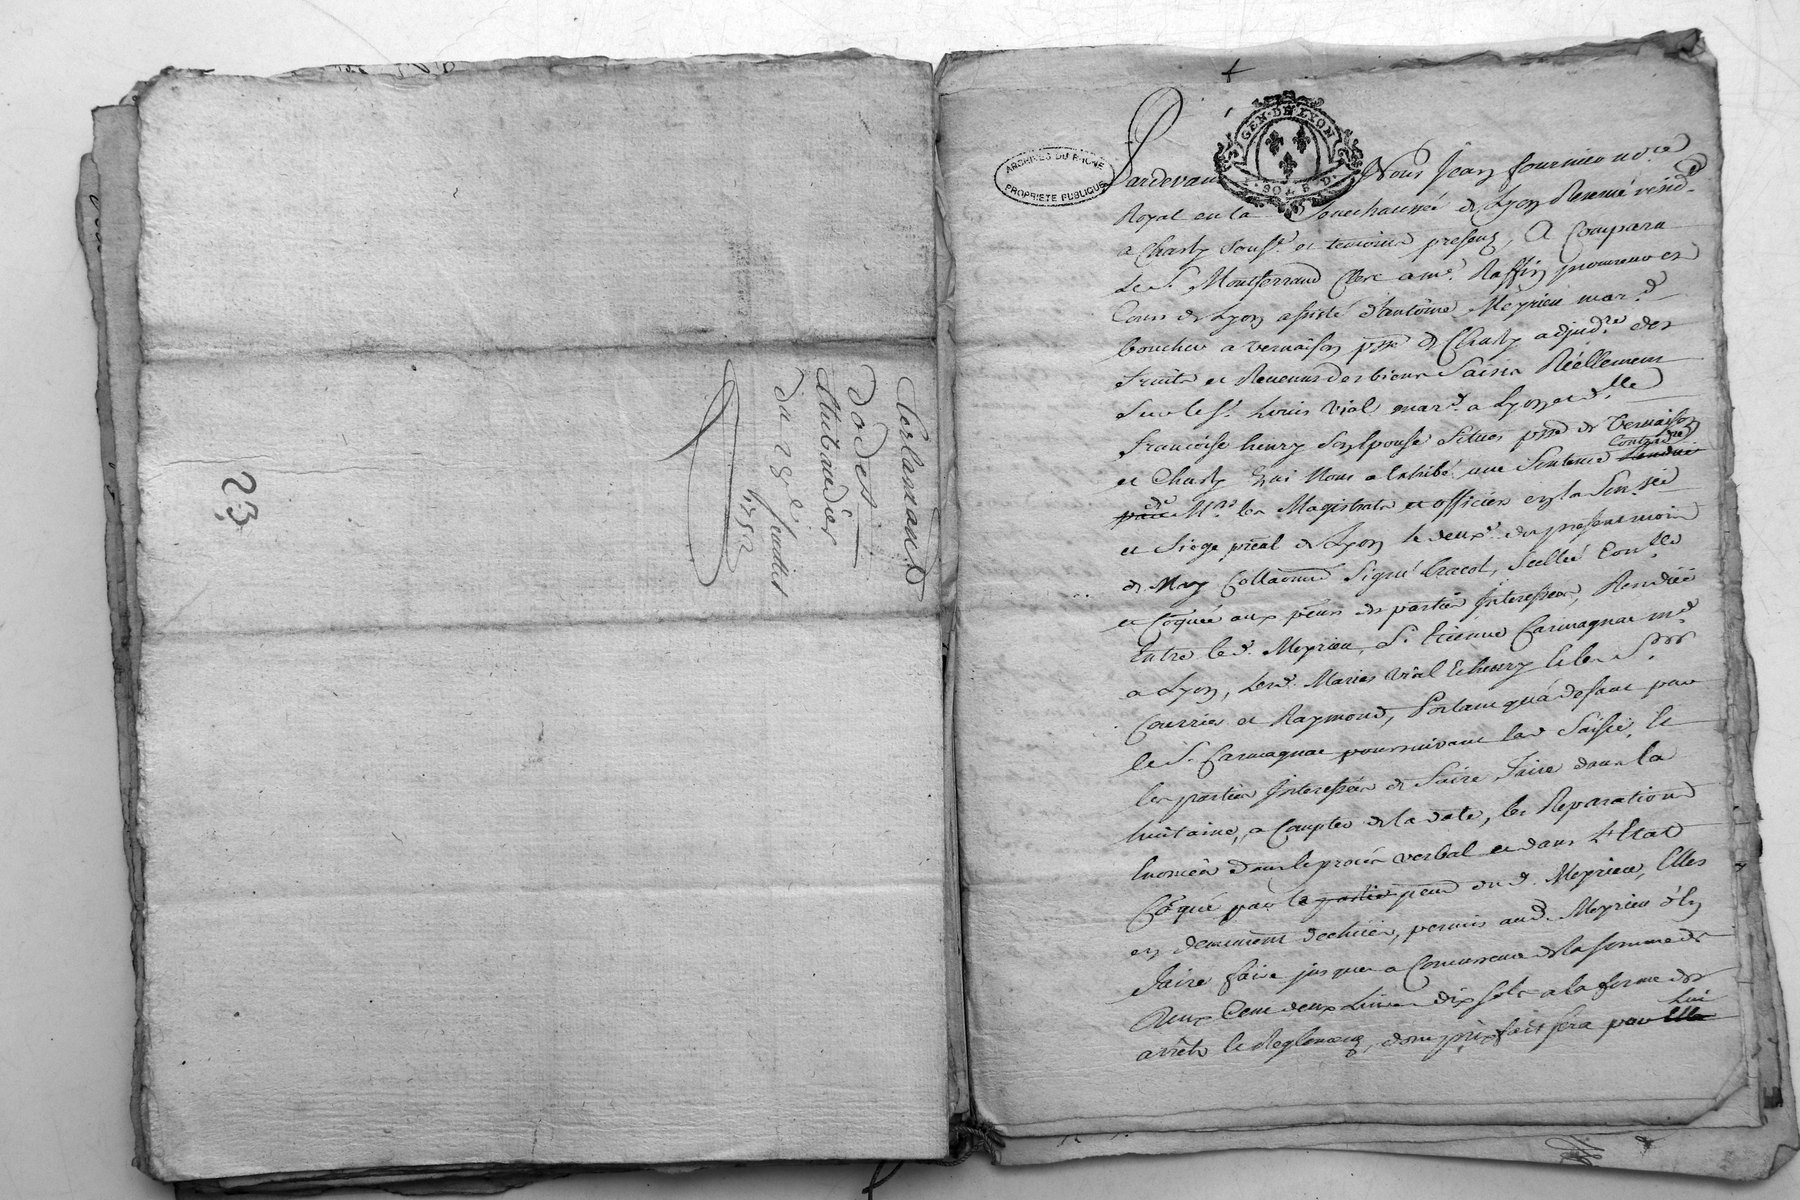 23
dodet
Thibaudier
du 23e Juillet
1752
ARCHIVES DU RHÔNE
PROPRIETE PUBLIQUE
GEN. DE LYON
SOLS. D.
Pardevant Nous Jean fournier no.re
Royal en la Senechaussée de Lyon Reservé résid.t
a Charly sous.é et temoins presens, A Comparu
Le S.r Montferrand Clerc a me. Raffin procureur es
Cours de Lyon assisté d'antoine Meyrieu mar.d
boucher a vernaison psse de Charly adjud.re des
fruits et Revenus des biens Saisis Réellement
Sur le S.r Louis Vial mar.d a Lyon et d.lle
francoise henry son épouse situés psse de Vernaison
et Charly qui Nous a Exhibé une Sentence Contradre
de Mrs les Magistrats et officiers en la Sen.sée
et Siege préal de Lyon le deux.e du present mois
de May Collationné Signé bracot, Scellée Con.llé
et Coquée aux pcurs des parties Interessées, Rendüe
Entre led. Meyrieu, S.r Etienne Carmagnac m.d
a Lyon, lesd. Mariés Vial et henry et les S.rs
Courrier et Raymond, Portant qu'a defaut par
le S.r Carmagnac poursuivant lad. Saisie, et
les parties Interessées de faire faire dans la
huitaine, a Compter de la date, les Reparations
Enoncées dans le procès verbal et dans L'Etat
Cõqué par le partie pcur dud. Meyrieu, Elles
en demeurent dechües, permis aud. Meyrieu d'en
faire faire jusques a Concurrence de la somme de
deux Cent deux Livres dix sols a la forme des
arrêts et Reglemens, dont prix fait sera par Lui